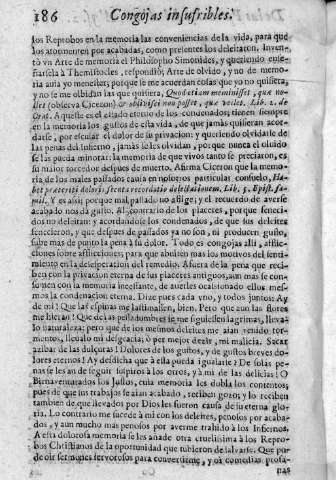 186 Congojas insufribles.
los Reprobos en la memoria las conveniencias de la vida, para que
los atormenten por acabadas, como presentes los deleitaron. Inven-
tò vn Arte de memoria el Philosopho Simonides, y queriendo enſe-
ñarſela à Themiſtocles, reſpondiò; Arte de olvido, y no de memo-
ria auia yo meneſter; porque ſe me acuerdan coſas que yo no quiſiera,
y no ſe me olvidan las que quiſiera. Quod etiam meminiſſet, quæ nol-
let (obſerva Ciceron) & obliviſci non poſſet, quæ vellet. Lib. 2. de
Orat. A queſte es el eſtado eterno de los condenados; tienen ſiempre
en la memoria los guſtos de eſta vida, de que jamàs quiſieran acor-
darſe, por eſcuſar el dolor de ſu privacion; y queriendo olvidarſe de
las penas del Infierno, jamàs ſe les olvidan, porque nunca el olvido
ſe las pueda minorar: la memoria de que vivos tanto ſe preciaron, es
ſu maior torcedor deſpues de muerto. Afirma Ciceron que la memo-
ria de los males paſſados cauſa en noſotros particular conſuelo, Ha-
bet præteriti doloris ſecura recordatio delectationem. Lib. 5. Epiſt. fa-
mil. Y es aſsi; porque mal paſſado no aflige; y el recuerdo de averſe
acabado nos dà guſto. Al contrario de los placeres, porque feneci-
dos no deleitan: y acordandoſe los condenados, de que ſus deleites
fenecieron, y que deſpues de paſſados ya no ſon, ni producen guſto,
ſube mas de punto la pena à ſu dolor. Todo es congojas alli, aflic-
ciones ſobre aflicciones, para que abulten mas los motivos del ſenti-
miento en la deſeſperacion del remedio. Afuera de la pena que reci-
ben con la privacion eterna de ſus placeres antiguos, aun mas ſe con-
ſumen con la memoria inceſſante, de averles ocaſionado ellos meſ-
mos ſa condenacion eterna. Dize pues cada vno, y todos juntos: Ay
de mi! Que las eſpinas me laſtimaſſen, bien. Pero que aun las flores
me hieran! Que de las peſſadumbres ſe me ſiguieſſen lagrimas, lleva-
lo naturaleza: pero que de los meſmos deleites me aian venido tor-
mentos, llevalo mi deſgracia; ò por mejor dezir, mi malicia. Sacar
azibar de las dulçuras! Dolores de los guſtos, y de guſtos breves do-
lores eternos! Ay deſdicha que à eſta pueda igualarſe? De ſolas pe-
nas ſe les an de ſeguir ſuſpiros à los otros, y à mi de las delicias! O
Bienaventurados los Juſtos, cuia memoria les dobla los contentos;
pues de que ſus trabajos ſe aian acabado, reciben gozo; y lo reciben
tambien de que llevados por Dios les fueron cauſa de ſu eterna glo-
ria. Lo contrario me ſucede à mi con los deleites, penoſos por acaba-
dos, y aun mucho màs penoſos por averme trahido à los Infiernos.
A eſta doloroſa memoria ſe les añade otra crueliſsima à los Repro-
bos Chriſtianos de la oportunidad que tubieron de ſalvarſe. Que pu-
de oir ſermones fervoroſos para convertirme, y oì comedias profa-
nas